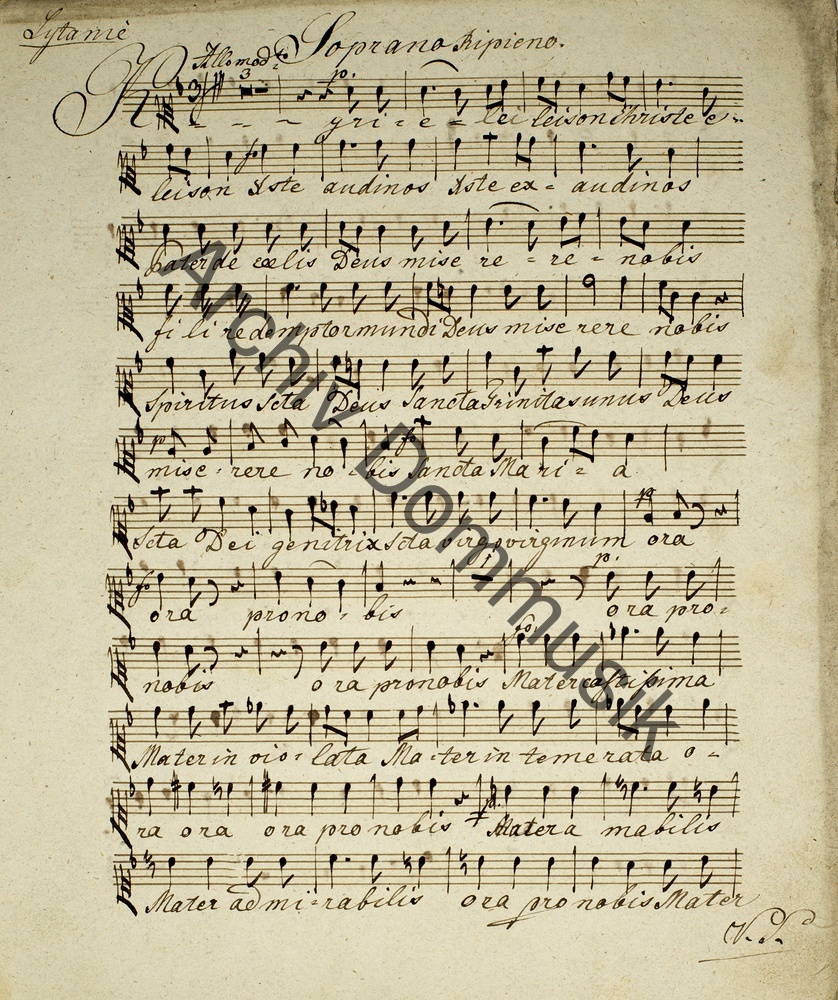 Lytanie
Soprano Ripieno.
Allo modto
3
p.
K - - - yri = e = lei leison Christe e =
fo
leison Xste audinos Xste ex = audinos
Pater de coelis Deus mise re = re = nobis
fi li redemptor mundi Deus mise rere nobis
Spiritus Scta Deus Sancta Trinitas unus Deus
p fo
mise = rere no = bis Sancta Ma ri = a
p
Scta Dei genitrix Scta virgo virginum ora
fo p.
ora prono = bis ora pro =
fo
nobis ora pronobis Mater castissima
Mater in vio = lata Ma = ter in temerata o =
ra ora ora pro nobis Mater a mabilis
Mater ad mi = rabilis ora pro nobis Mater
V. S.
Archiv Dommusik